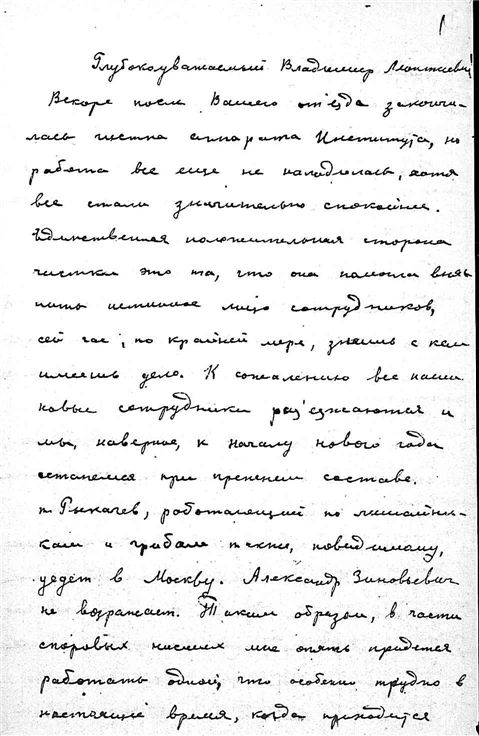 1
Глубокоуважаемый Владимир Леонтьевич!
Вскоре после Вашего от'езда закончи-
лась чистка аппарата Института, но
работа все еще не наладилась, хотя
все стали значительно спокойнее.
Единственная положительная сторона
чистки это та, что она помогла выяв
лять истинное лицо сотрудников,
сейчас, по крайней мере, знаешь с кем
имеешь дело. К сожалению все наши
новые сотрудники раз'езжаются и
мы, наверное, к началу нового года
останемся при прежнем составе.
т. Рыкачев, работающий по лишайни-
кам и грибам также, повидимому,
уедет в Москву. Александр Зиновьевич
не возражает. Таким образом, в части
споровых низших мне опять придется
работать одной, что особенно трудно в
настоящее время, когда приходится